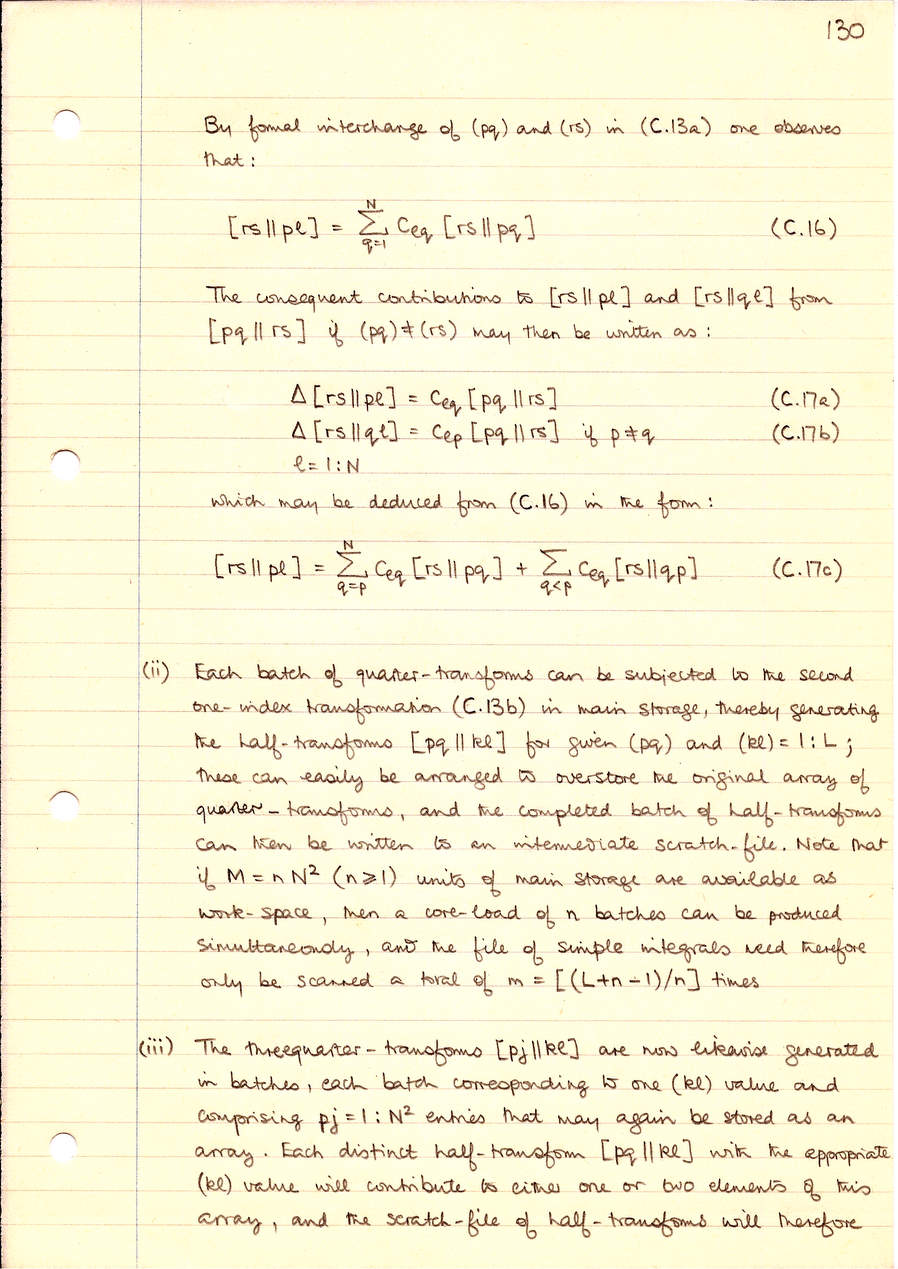 130
By formal interchange of (pq) and (rs) in (C.13a) one observes
that :
[rs||pℓ] = N∑q=1 Cℓq [rs||pq] (C.16)
The consequent contributions to [rs||pℓ] and [rs||qℓ] from
[pq||rs] if (pq)≠(rs) may then be written as :
Δ[rs||pℓ] = Cℓq [pq||rs] (C.17a)
Δ[rs||qℓ] = Cℓp [pq||rs] if p≠q (C.17b)
ℓ=1:N
which may be deduced from (C.16) in the form :
[rs||pℓ] = N∑q=p Cℓq [rs||pq] + ∑q<p Cℓq [rs||qp] (C.17c)
(ii) Each batch of quarter-transforms can be subjected to the second
one-index transformation (C.13b) in main storage, thereby generating
the half-transforms [pq||kℓ] for given (pq) and (kℓ)=1:L ;
these can easily be arranged to overstore the original array of
quarter-transforms, and the completed batch of half-transforms
can then be written to an intermediate scratch-file. Note that
if M = nN² (n⩾1) units of main storage are available as
work-space, then a core-load of n batches can be produced
simultaneously, and the file of simple integrals need therefore
only be scanned a total of m = [(L+n-1)/n] times
(iii) The threequarter-transforms [pj||kℓ] are now likewise generated
in batches, each batch corresponding to one (kℓ) value and
comprising pj=1:N² entries that may again be stored as an
array. Each distinct half-transform [pq||kℓ] with the appropriate
(kℓ) value will contribute to either one or two elements of this
array, and the scratch-file of half-transforms will therefore